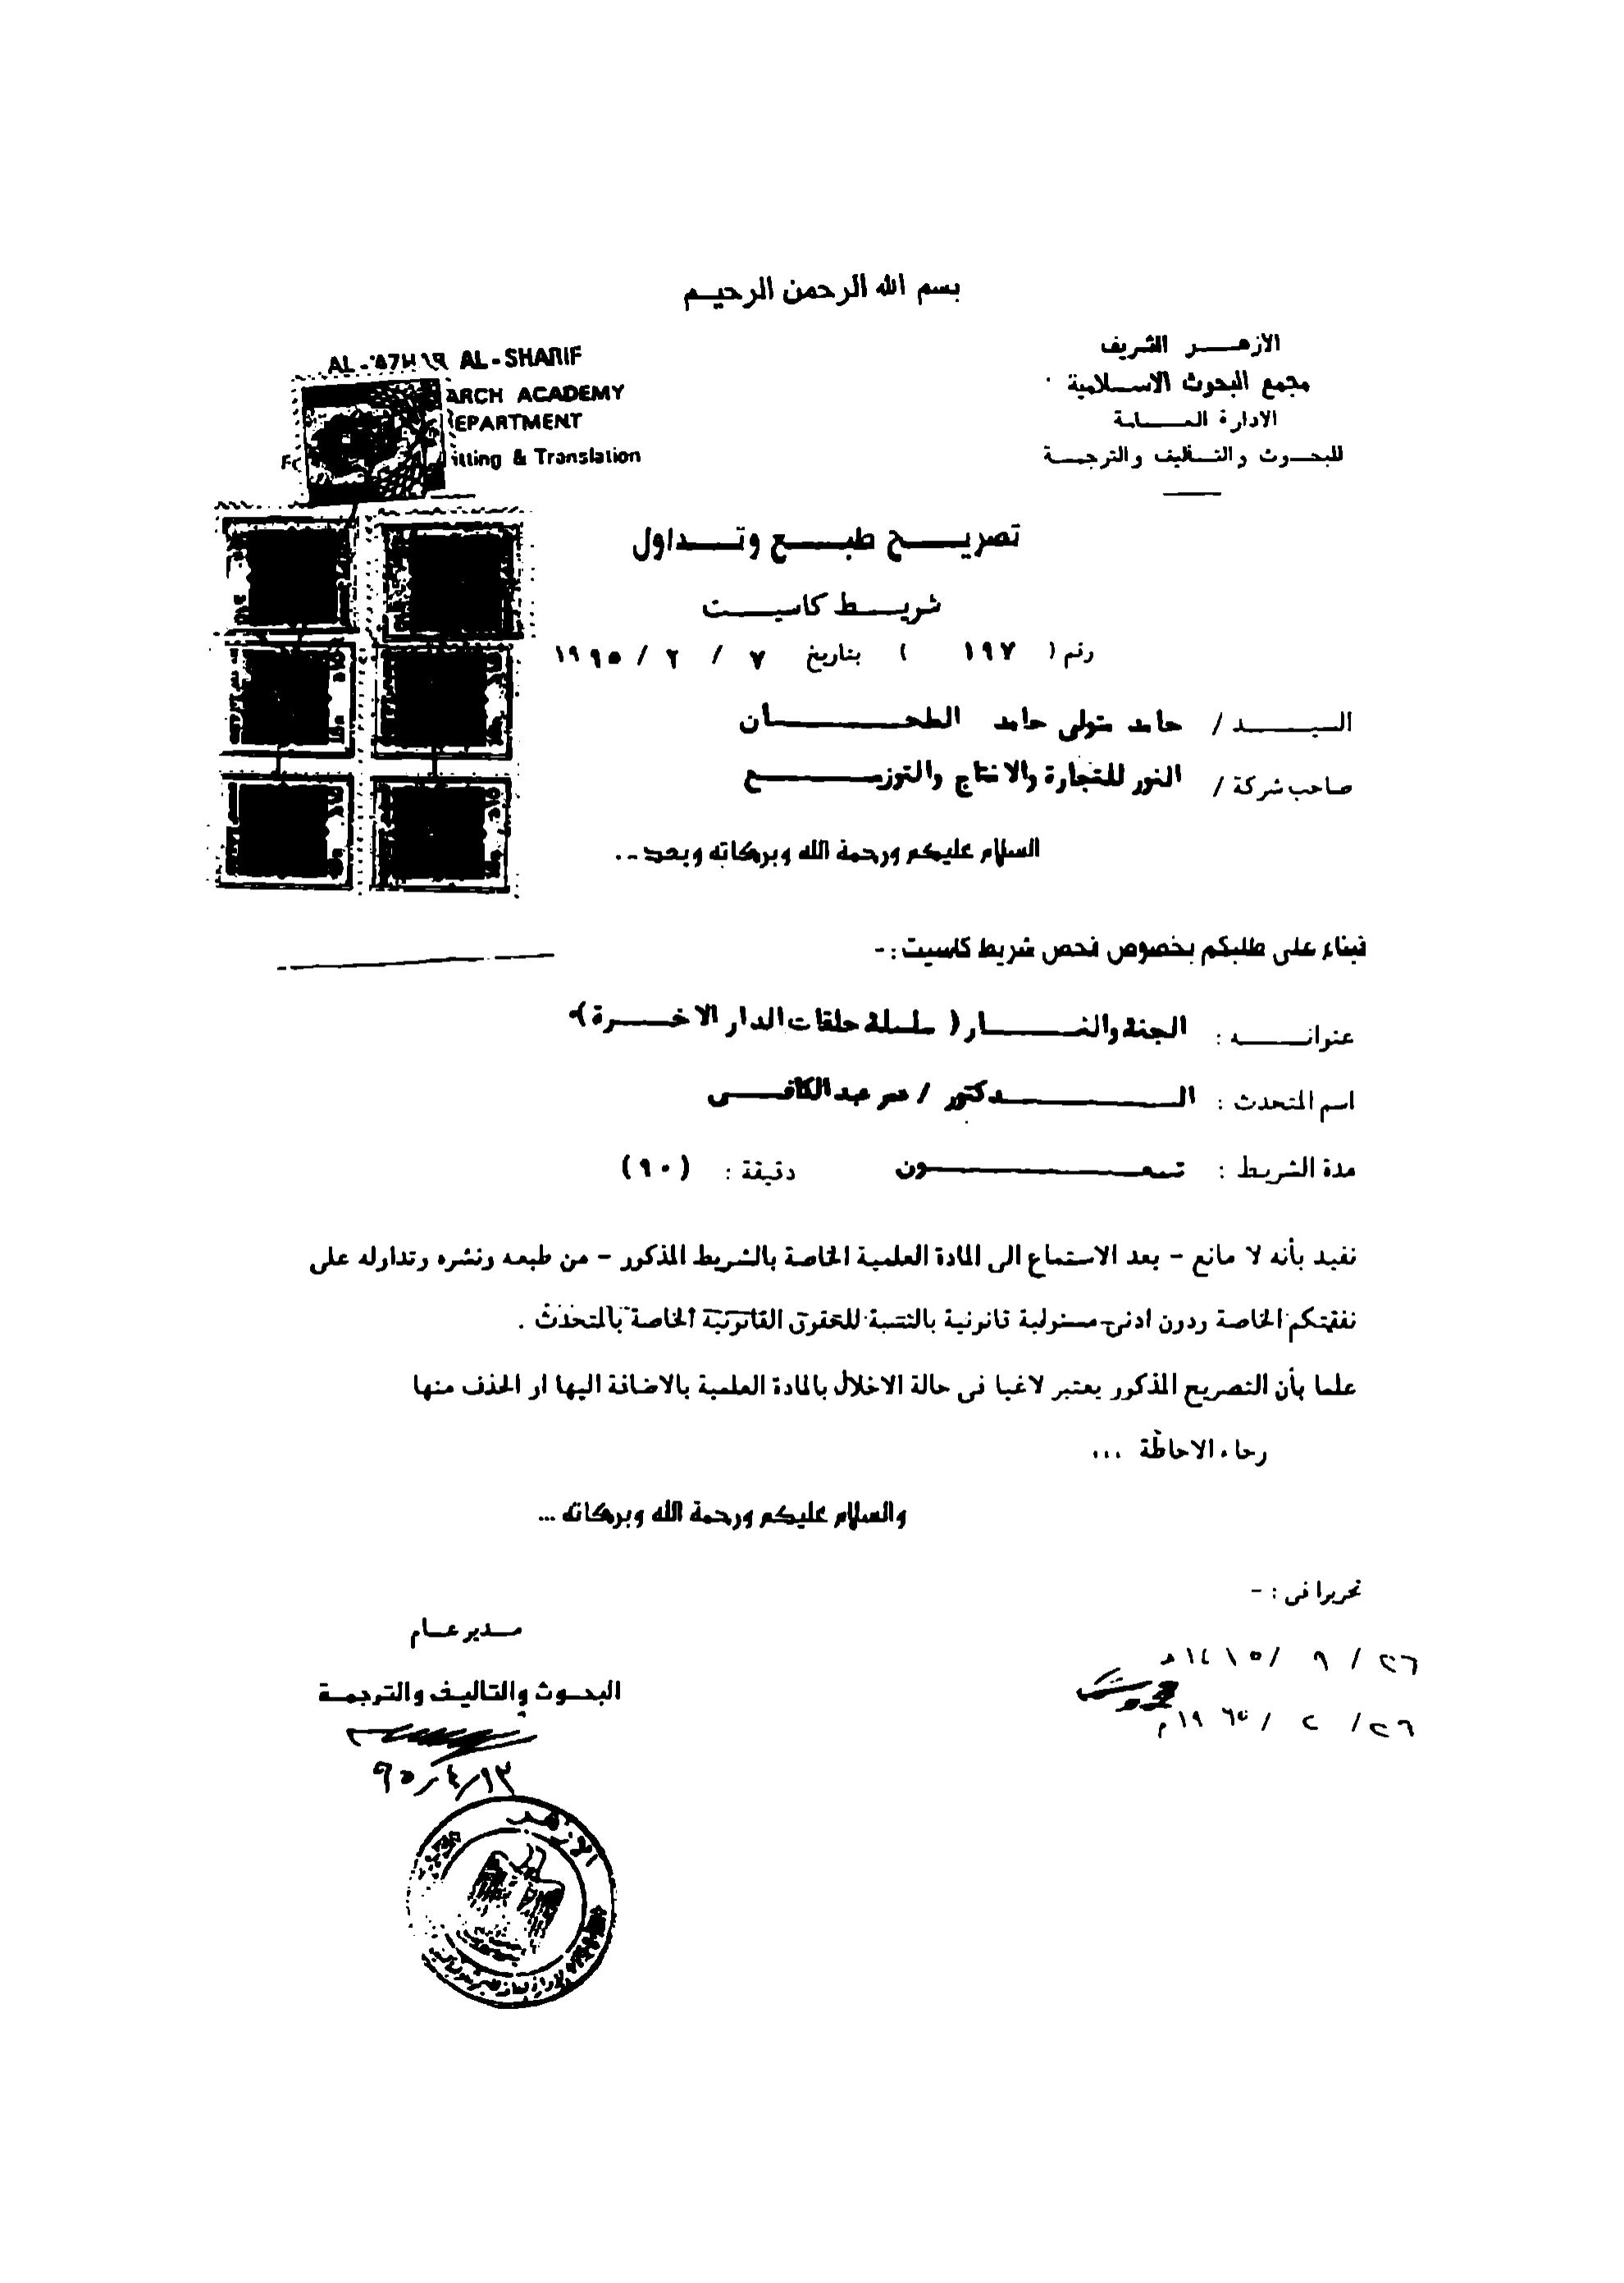 بسم الله الرحمن الرحيم
الازهر الشريف
مجمع البحوث الاسلامية
الادارة العامة
للبحوث والتأليف والترجمة
AL-SHARIF
ARCH ACADEMY
EPARTMENT
itting & Translation
تصريح طبع وتداول
شريط كاسيت
رقم ( ١٩٧ ) بتاريخ ٧ / ٢ / ١٩٩٥
السيد / حامد متولى حامد الطحان
صاحب شركة / النور للتجارة والانتاج والتوزيع
السلام عليكم ورحمة الله وبركاته وبعد ..
فبناء على طلبكم بخصوص فحص شريط كاسيت :-
عنوانه : الجنة والنار ( سلسلة حلقات الدار الاخرة )
اسم المتحدث : الدكتور / عمر عبد الكافى
مدة الشريط : تسعون دقيقة : (٩٠)
نفيد بأنه لا مانع - بعد الاستماع الى المادة العلمية الخاصة بالشريط المذكور - من طبعه ونشره وتداوله على
نفقتكم الخاصة ودون ادنى مسئولية قانونية بالنسبة للحقوق القانونية الخاصة بالمتحدث .
علما بأن التصريح المذكور يعتبر لاغيا فى حالة الاخلال بالمادة العلمية بالاضافة اليها او الحذف منها
رجاء الاحاطة ...
والسلام عليكم ورحمة الله وبركاته ...
تحريرا فى : -
٢٦ / ٩ / ١٤١٥ هـ
٢٦ / ٢ / ١٩٩٥ م
مدير عام
البحوث والتاليف والترجمة
٩٥/٤/١٣
الازهر